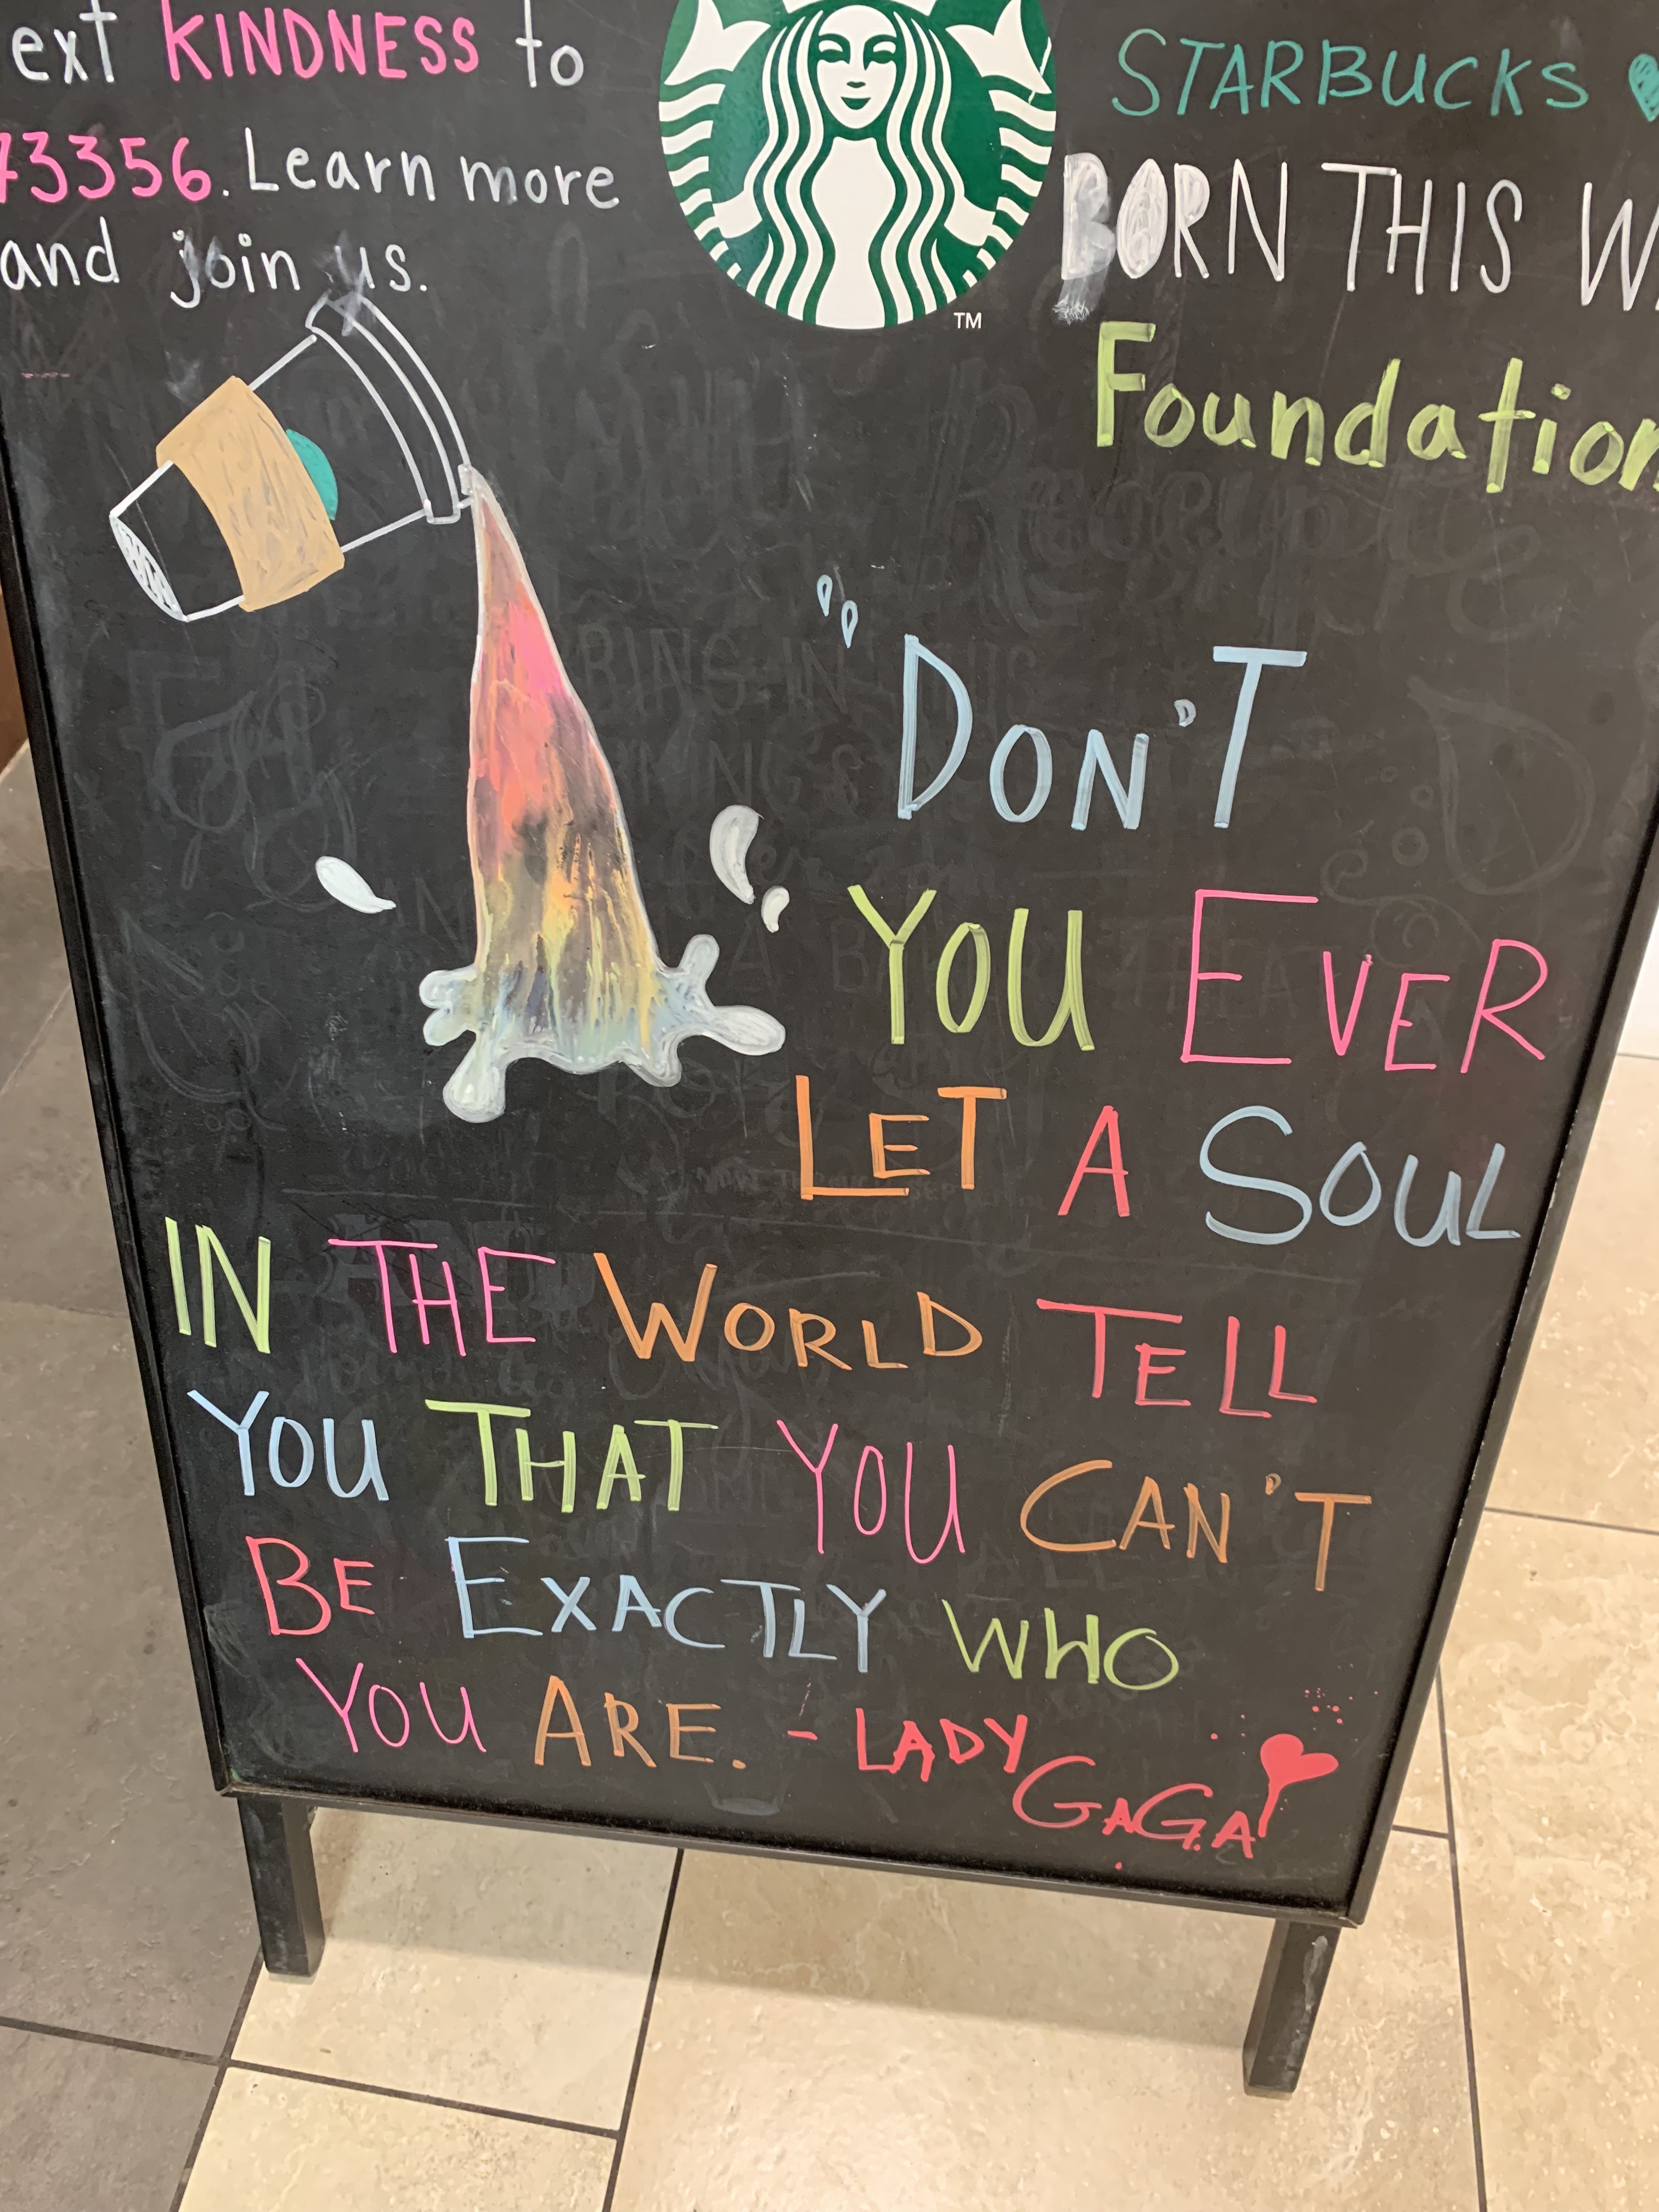 ext KINDNESS to
73356. Learn more
and join us.
TM
STARBUCKS
BORN THIS WA
Foundation
"DON'T
YOU EVER
LET A SOUL
IN THE WORLD TELL
YOU THAT YOU CAN'T
BE EXACTLY WHO
YOU ARE. - LADY
GAGA